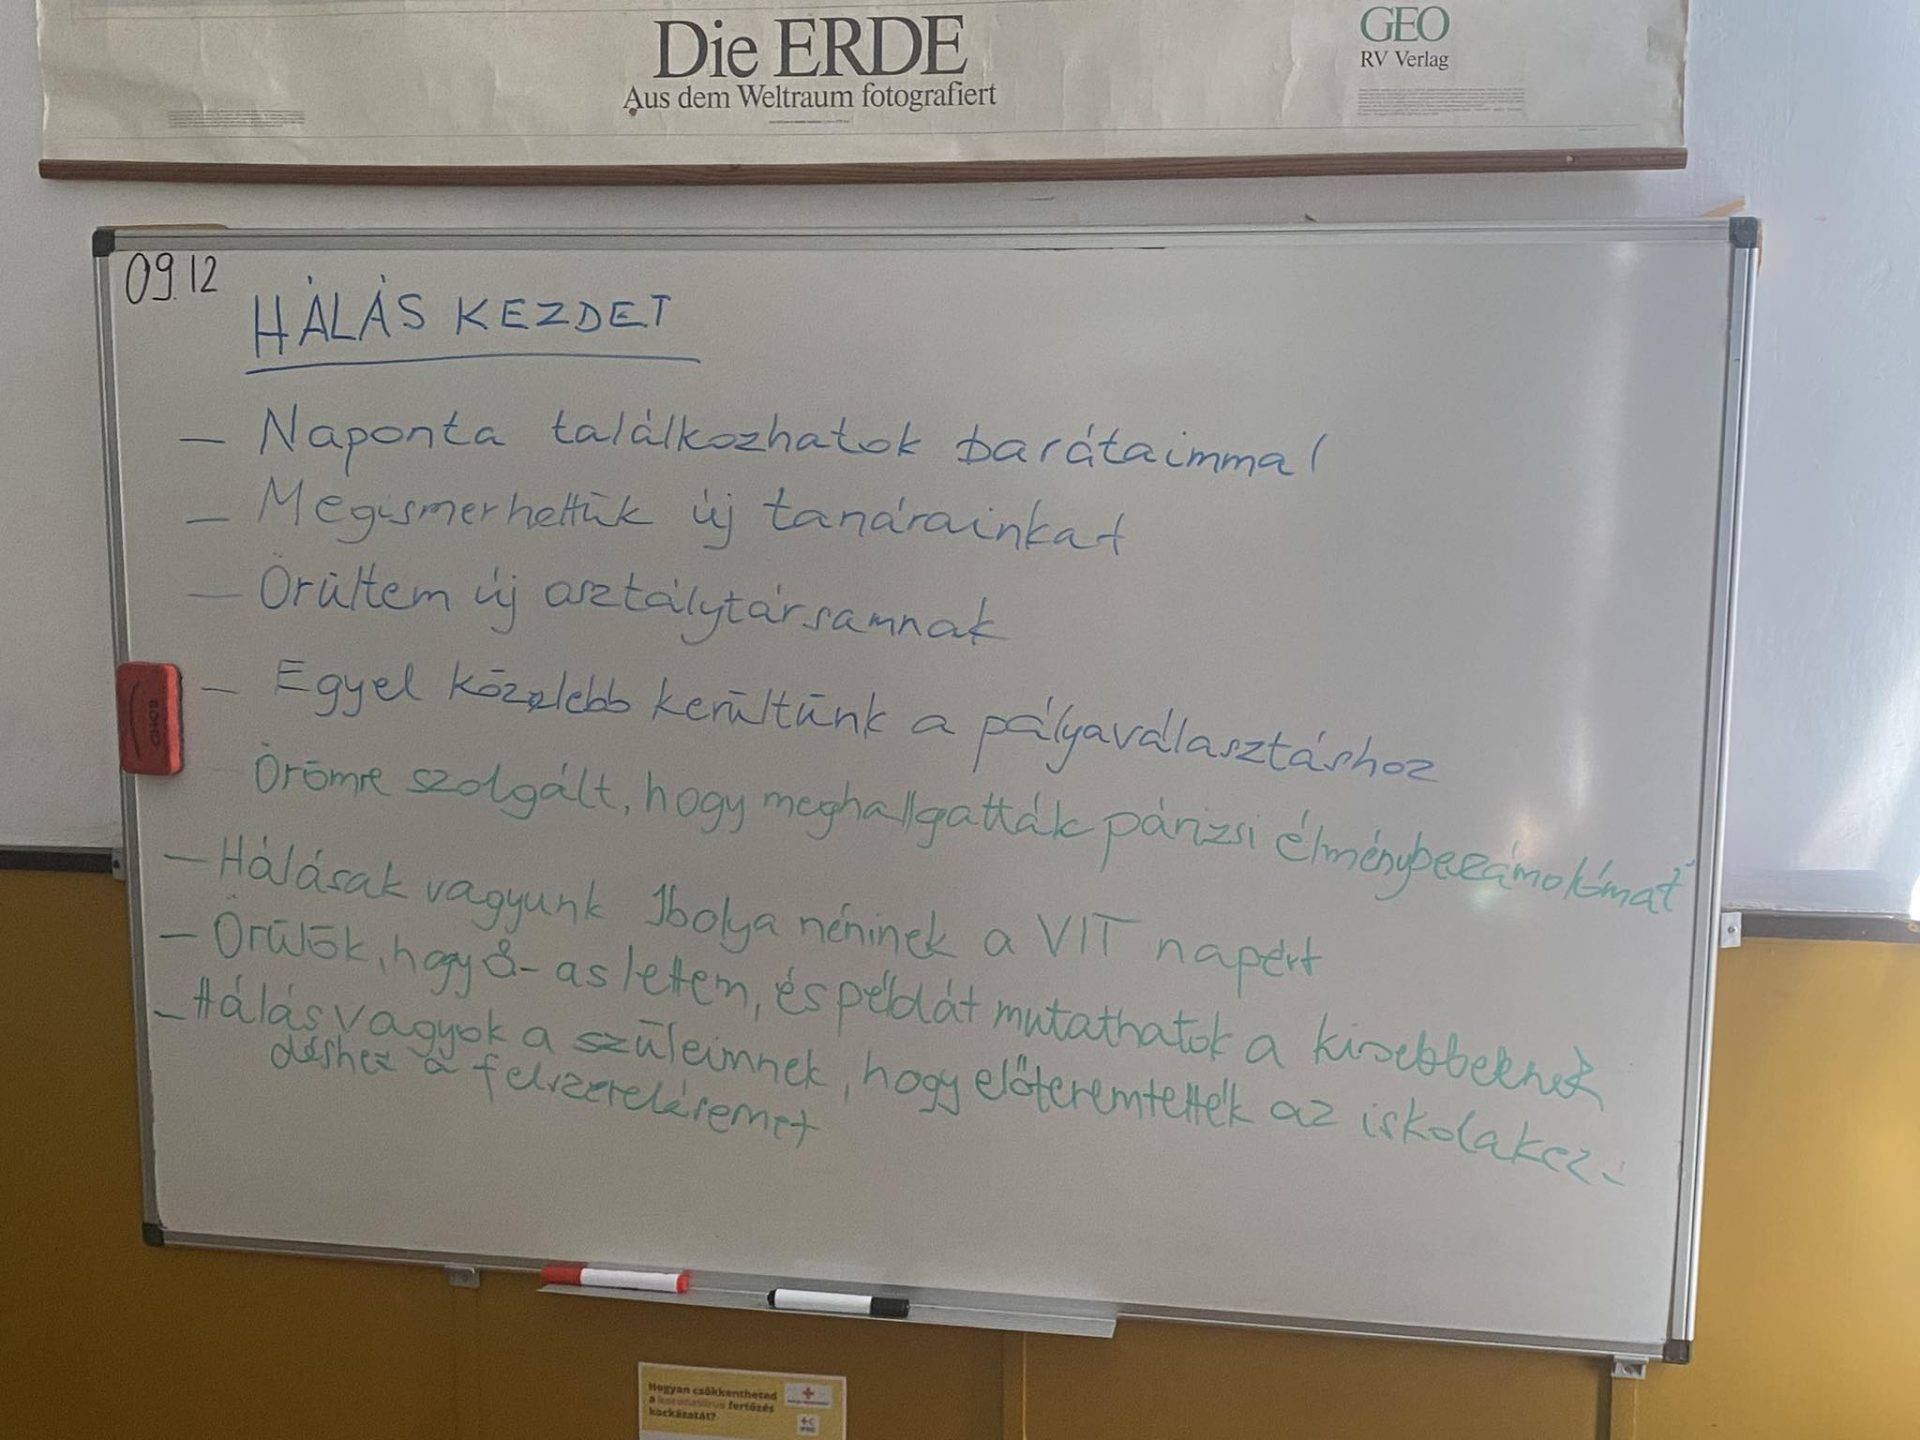 Die ERDE
Aus dem Weltraum fotografiert
GEO
RV Verlag
09.12
HÁLÁS KEZDET
— Naponta találkozhatok barátaimmal
— Megismerhettük új tanárainkat
— Örültem új asztálytársamnak
— Egyel közelebb kerültünk a pályaválasztáshoz
Örömre szolgált, hogy meghallgatták párizsi élménybeszámolómat
— Hálásak vagyunk Ibolya néninek a VIT napért
— Örülök, hogy 8-as lettem, és példát mutathatok a kisebbeknek
— Hálás vagyok a szüleimnek, hogy előteremtették az iskolakez-
déshez a felszerelésemet
Hogyan csökkentheted
a koronavírus fertőzés
kockázatát?